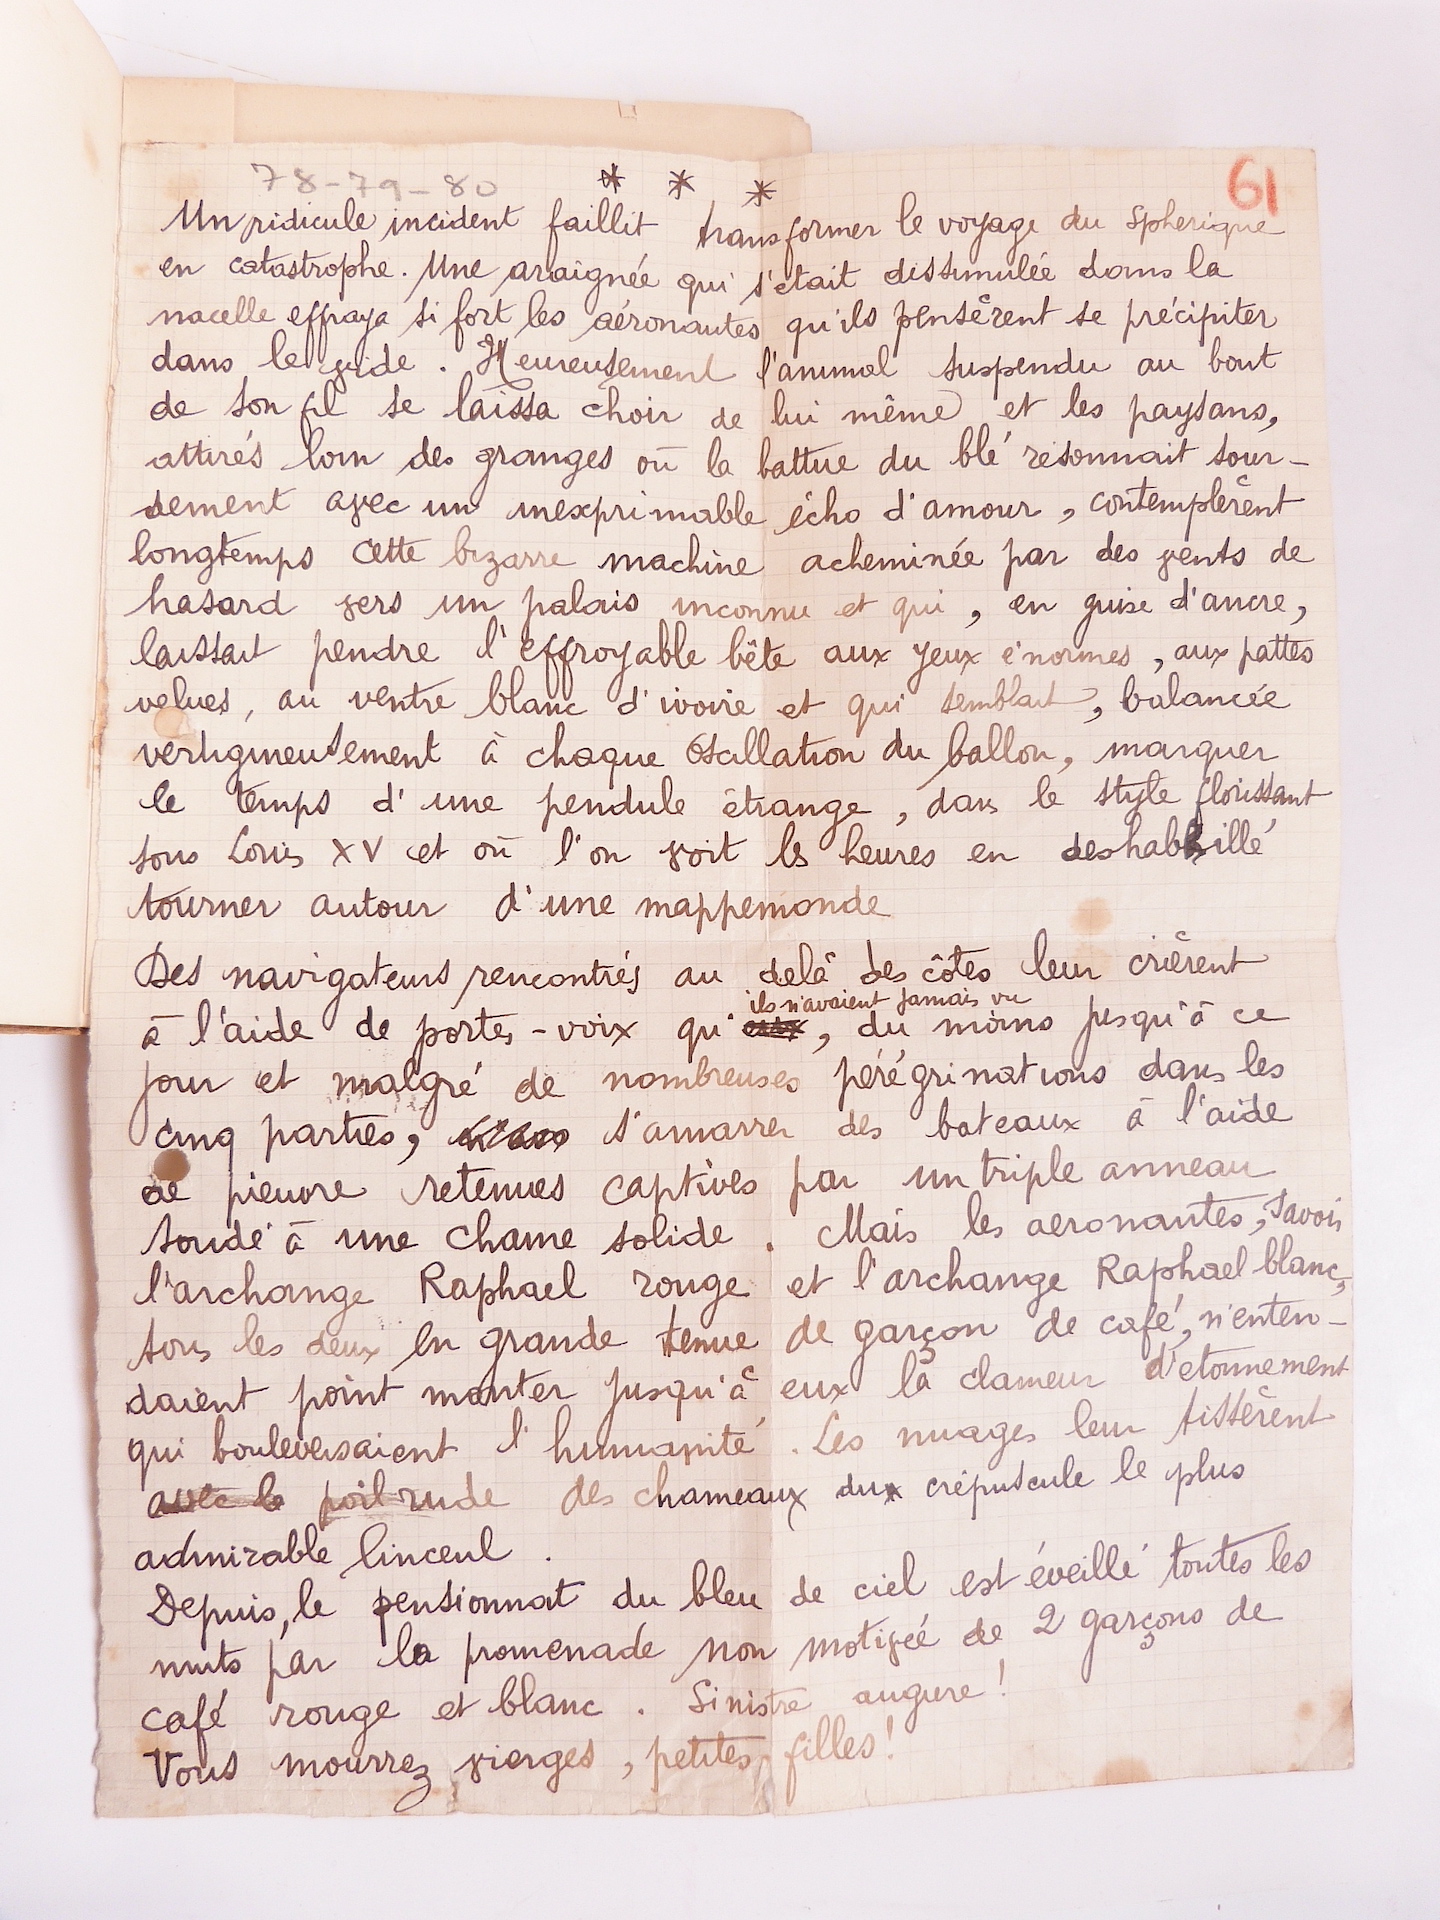 78-79-80
* * *
61
Un ridicule incident faillit transformer le voyage du Spherique
en catastrophe. Une araignée qui s'était dissimulée dans la
nacelle effraya si fort les aéronautes qu'ils pensèrent se précipiter
dans le vide. Heureusement l'animal suspendu au bout
de son fil se laissa choir de lui même et les paysans,
attirés loin des granges où la battue du blé résonnait sour-
dement avec un inexprimable écho d'amour, contemplèrent
longtemps cette bizarre machine acheminée par des vents de
hasard vers un palais inconnu et qui, en guise d'ancre,
laissait pendre l'effroyable bête aux yeux énormes, aux pattes
velues, au ventre blanc d'ivoire et qui semblait, balancée
vertigineusement à chaque oscillation du ballon, marquer
le temps d'une pendule étrange, dans le style florissant
sous Louis XV et où l'on voit les heures en deshabillé
tourner autour d'une mappemonde
Des navigateurs rencontrés au delà des côtes leur crièrent
ils n'avaient jamais vu
à l'aide de portes-voix qu', du moins jusqu'à ce
jour et malgré de nombreuses pérégrinations dans les
cinq parties, s'amarrer des bateaux à l'aide
de pieuvre retenues captives par un triple anneau
soudé à une chaine solide. Mais les aeronautes, savoir
l'archange Raphael rouge et l'archange Raphael blanc,
tous les deux en grande tenue de garçon de café, n'enten-
daient point monter jusqu'à eux la clameur d'etonnement
qui bouleversaient l'humanité. Les nuages leur tissèrent
avec le poil rude des chameaux du crépuscule le plus
admirable linceul.
Depuis, le pensionnat du bleu de ciel est éveillé toutes les
nuits par la promenade non motivée de 2 garçons de
café rouge et blanc. Sinistre augure!
Vous mourrez vierges, petites filles!